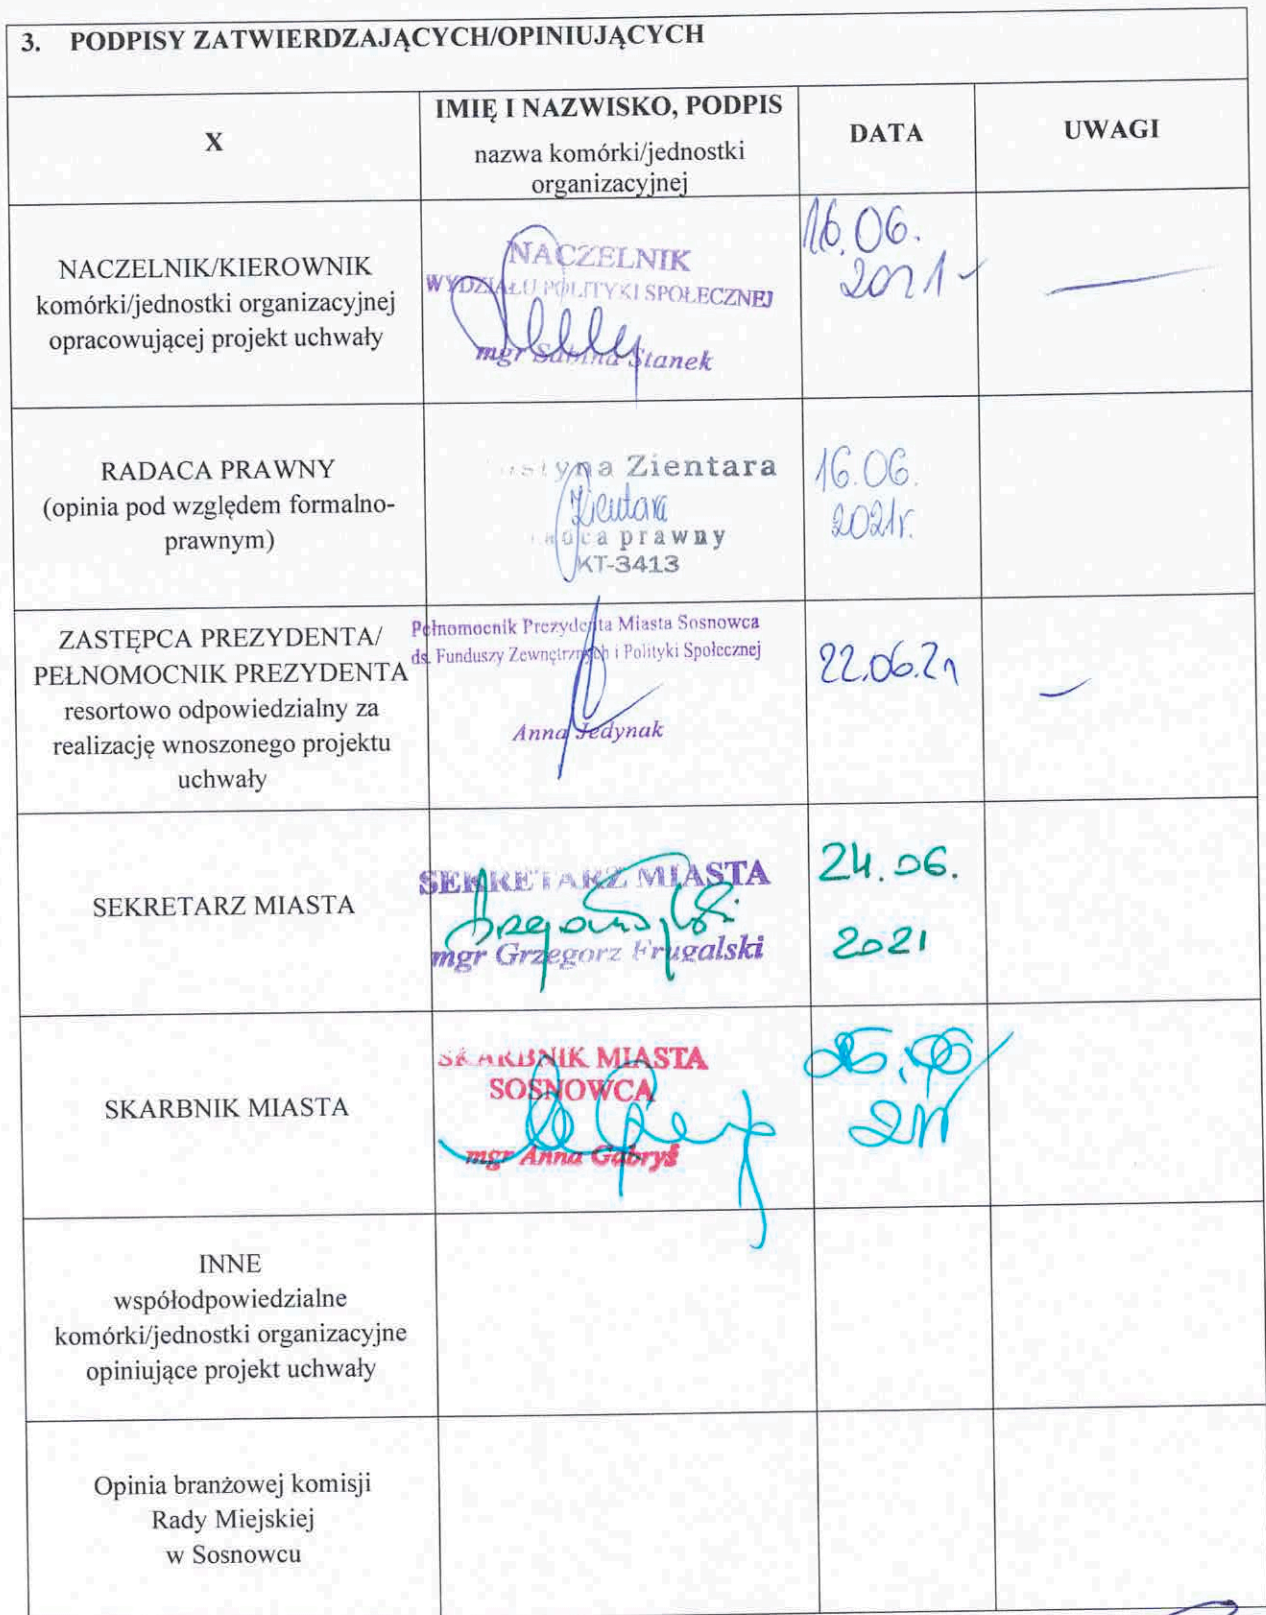 3. PODPISY ZATWIERDZAJĄCYCH/OPINIUJĄCYCH
X
IMIĘ I NAZWISKO, PODPIS
nazwa komórki/jednostki
organizacyjnej
DATA
UWAGI
NACZELNIK/KIEROWNIK
komórki/jednostki organizacyjnej
opracowującej projekt uchwały
NACZELNIK
WYDZIAŁU POLITYKI SPOŁECZNEJ
mgr Sabina Stanek
16.06.
2021
RADACA PRAWNY
(opinia pod względem formalno-
prawnym)
Zientara
Zientara
prawny
KT-3413
16.06.
2021r.
ZASTĘPCA PREZYDENTA/
PEŁNOMOCNIK PREZYDENTA
resortowo odpowiedzialny za
realizację wnoszonego projektu
uchwały
Pełnomocnik Prezydenta Miasta Sosnowca
ds. Funduszy Zewnętrznych i Polityki Społecznej
Anna Jedynak
22.06.21
SEKRETARZ MIASTA
SEKRETARZ MIASTA
mgr Grzegorz Frugalski
24.06.
2021
SKARBNIK MIASTA
SKARBNIK MIASTA
SOSNOWCA
mgr Anna Gabryś
INNE
współodpowiedzialne
komórki/jednostki organizacyjne
opiniujące projekt uchwały
Opinia branżowej komisji
Rady Miejskiej
w Sosnowcu